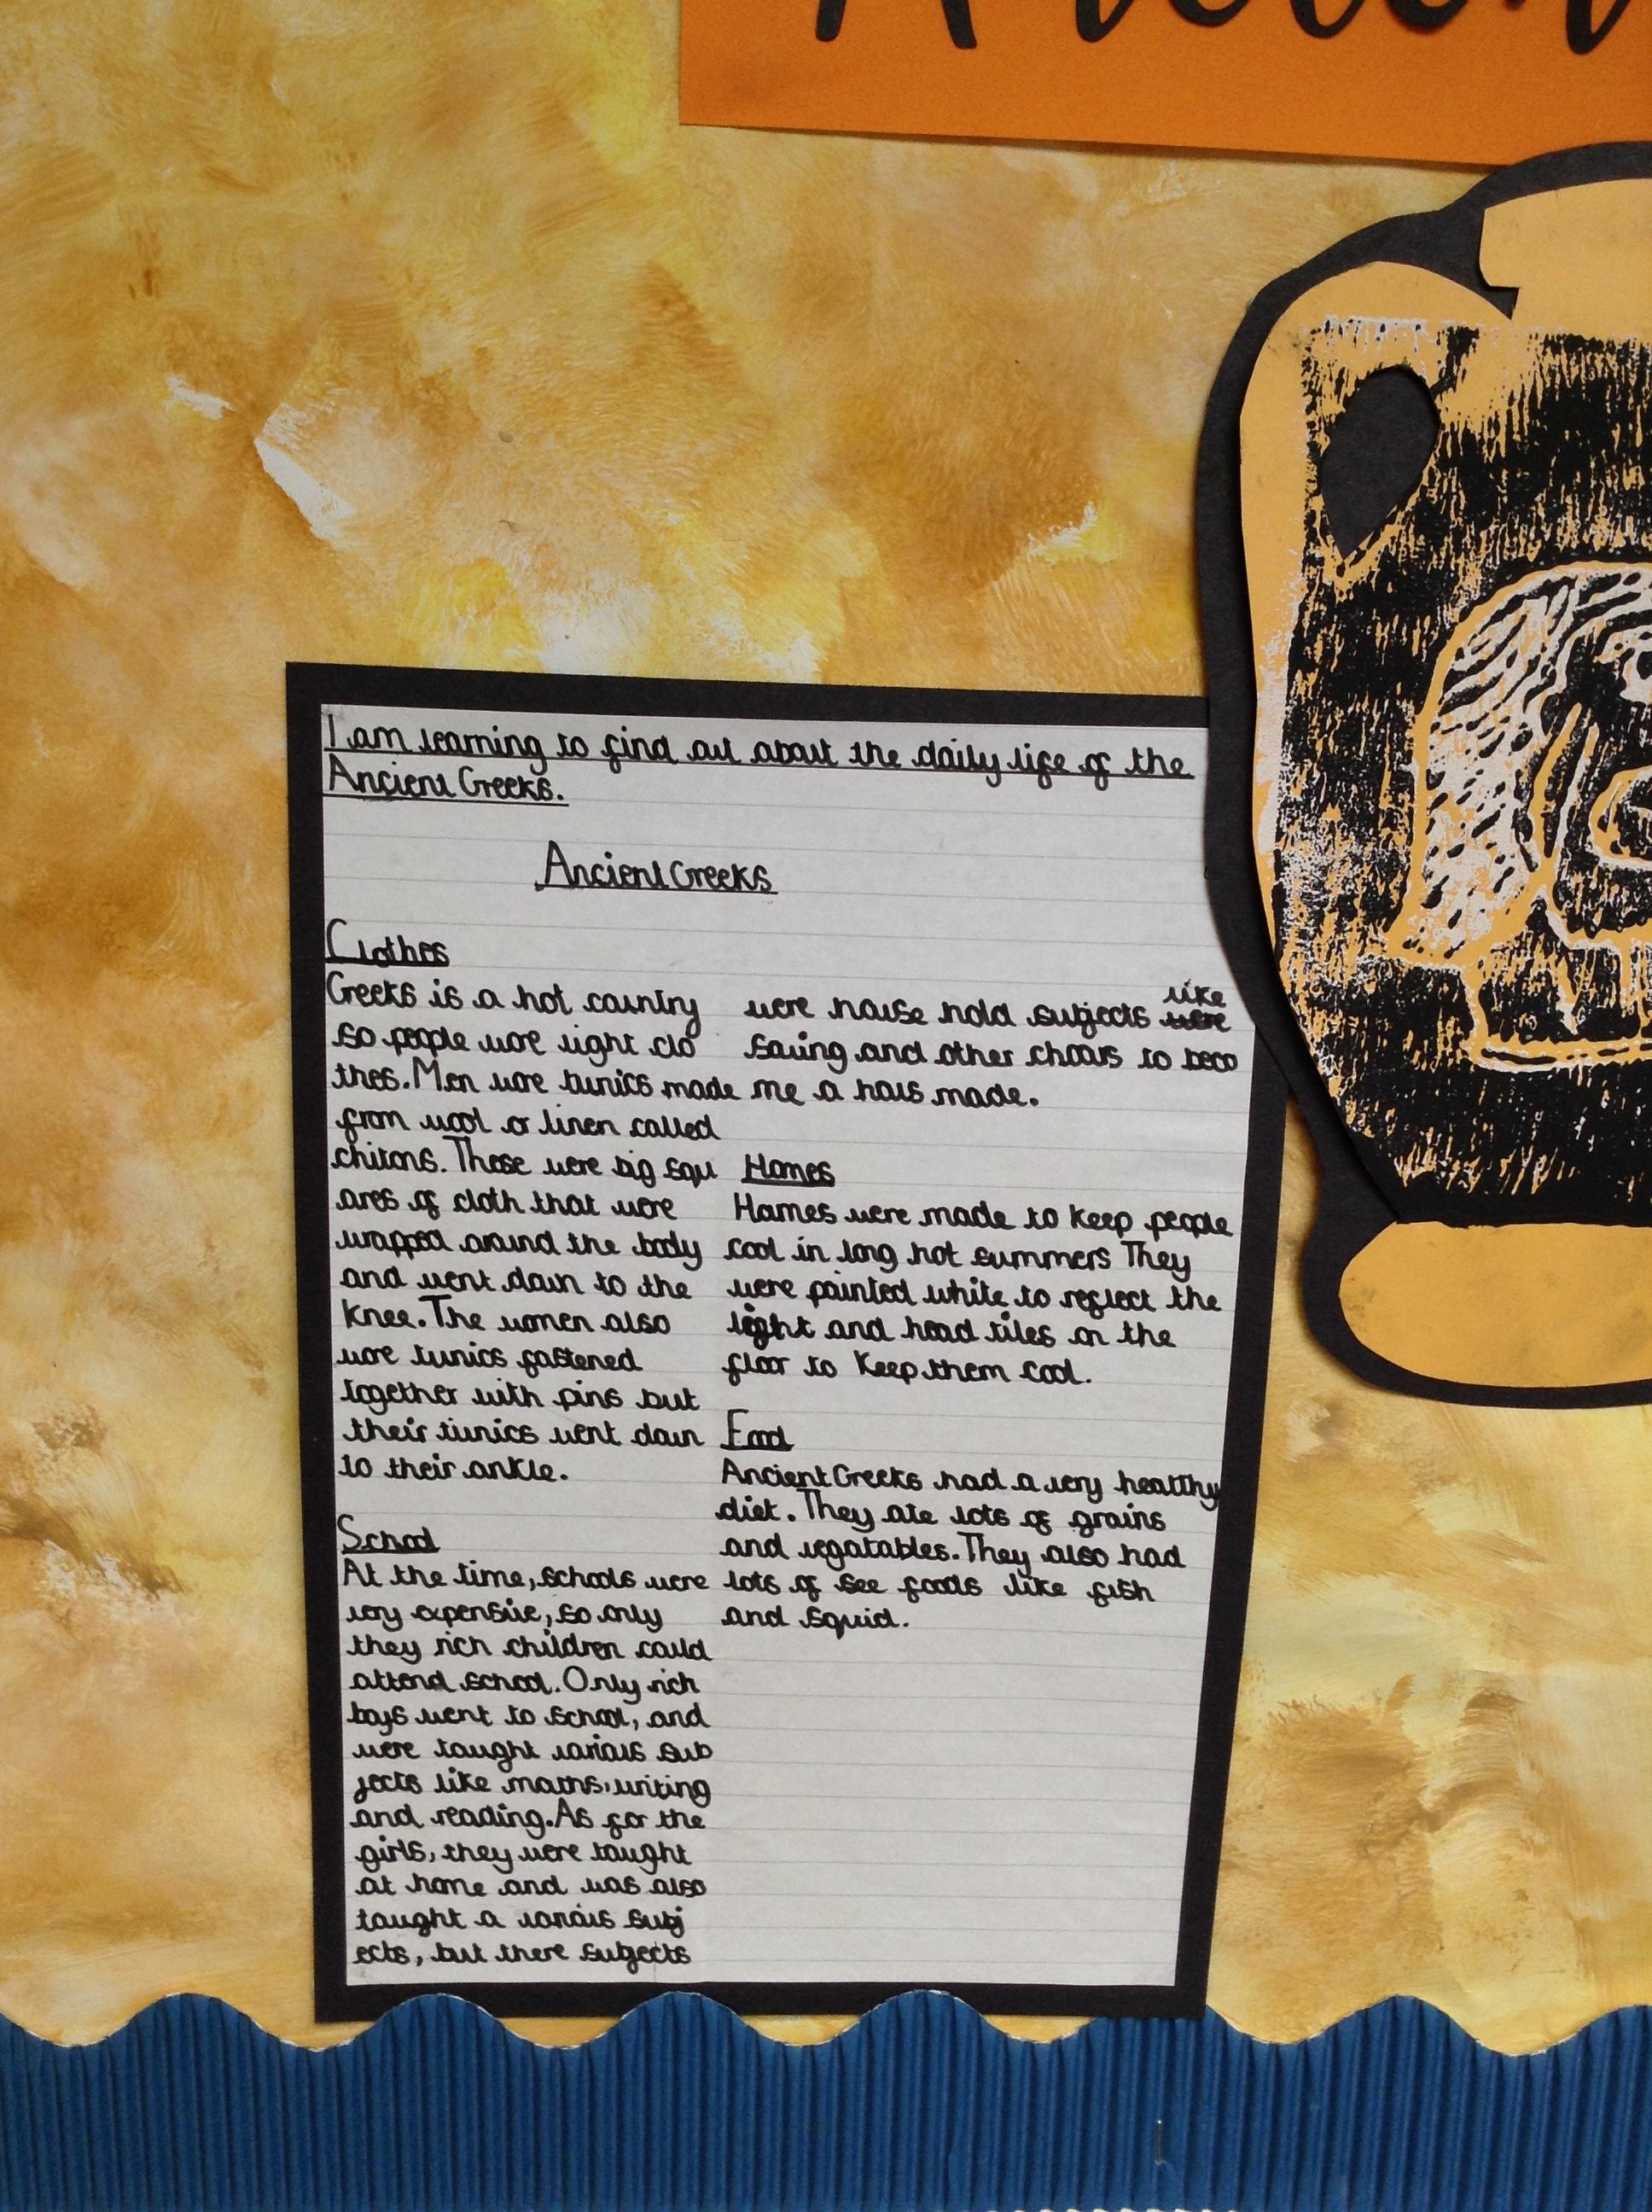 I am learning to find out about the daily life of the
Ancient Greeks.
Ancient Greeks
Clothes
Greeks is a hot country
so people wore light clo
thes. Men wore tunics made
from wool or linen called
chitons. These were big squ
ares of cloth that were
wrapped around the body
and went down to the
knee. The women also
wore tunics fastened
together with pins but
their tunics went down
to their ankle.
School
At the time, schools were
very expensive, so only
they rich children could
attend school. Only rich
boys went to school, and
were taught various sub
jects like maths, writing
and reading. As for the
girls, they were taught
at home and was also
taught a various subj
ects, but there subjects
were house hold subjects like
saving and other choars to beco
me a hous made.
Homes
Homes were made to keep people
cool in long hot summers They
were painted white to reflect the
light and head tiles on the
floor to keep them cool.
Food
Ancient Greeks had a very healthy
diet. They ate lots of grains
and vegatables. They also had
lots of see foods like fish
and squid.